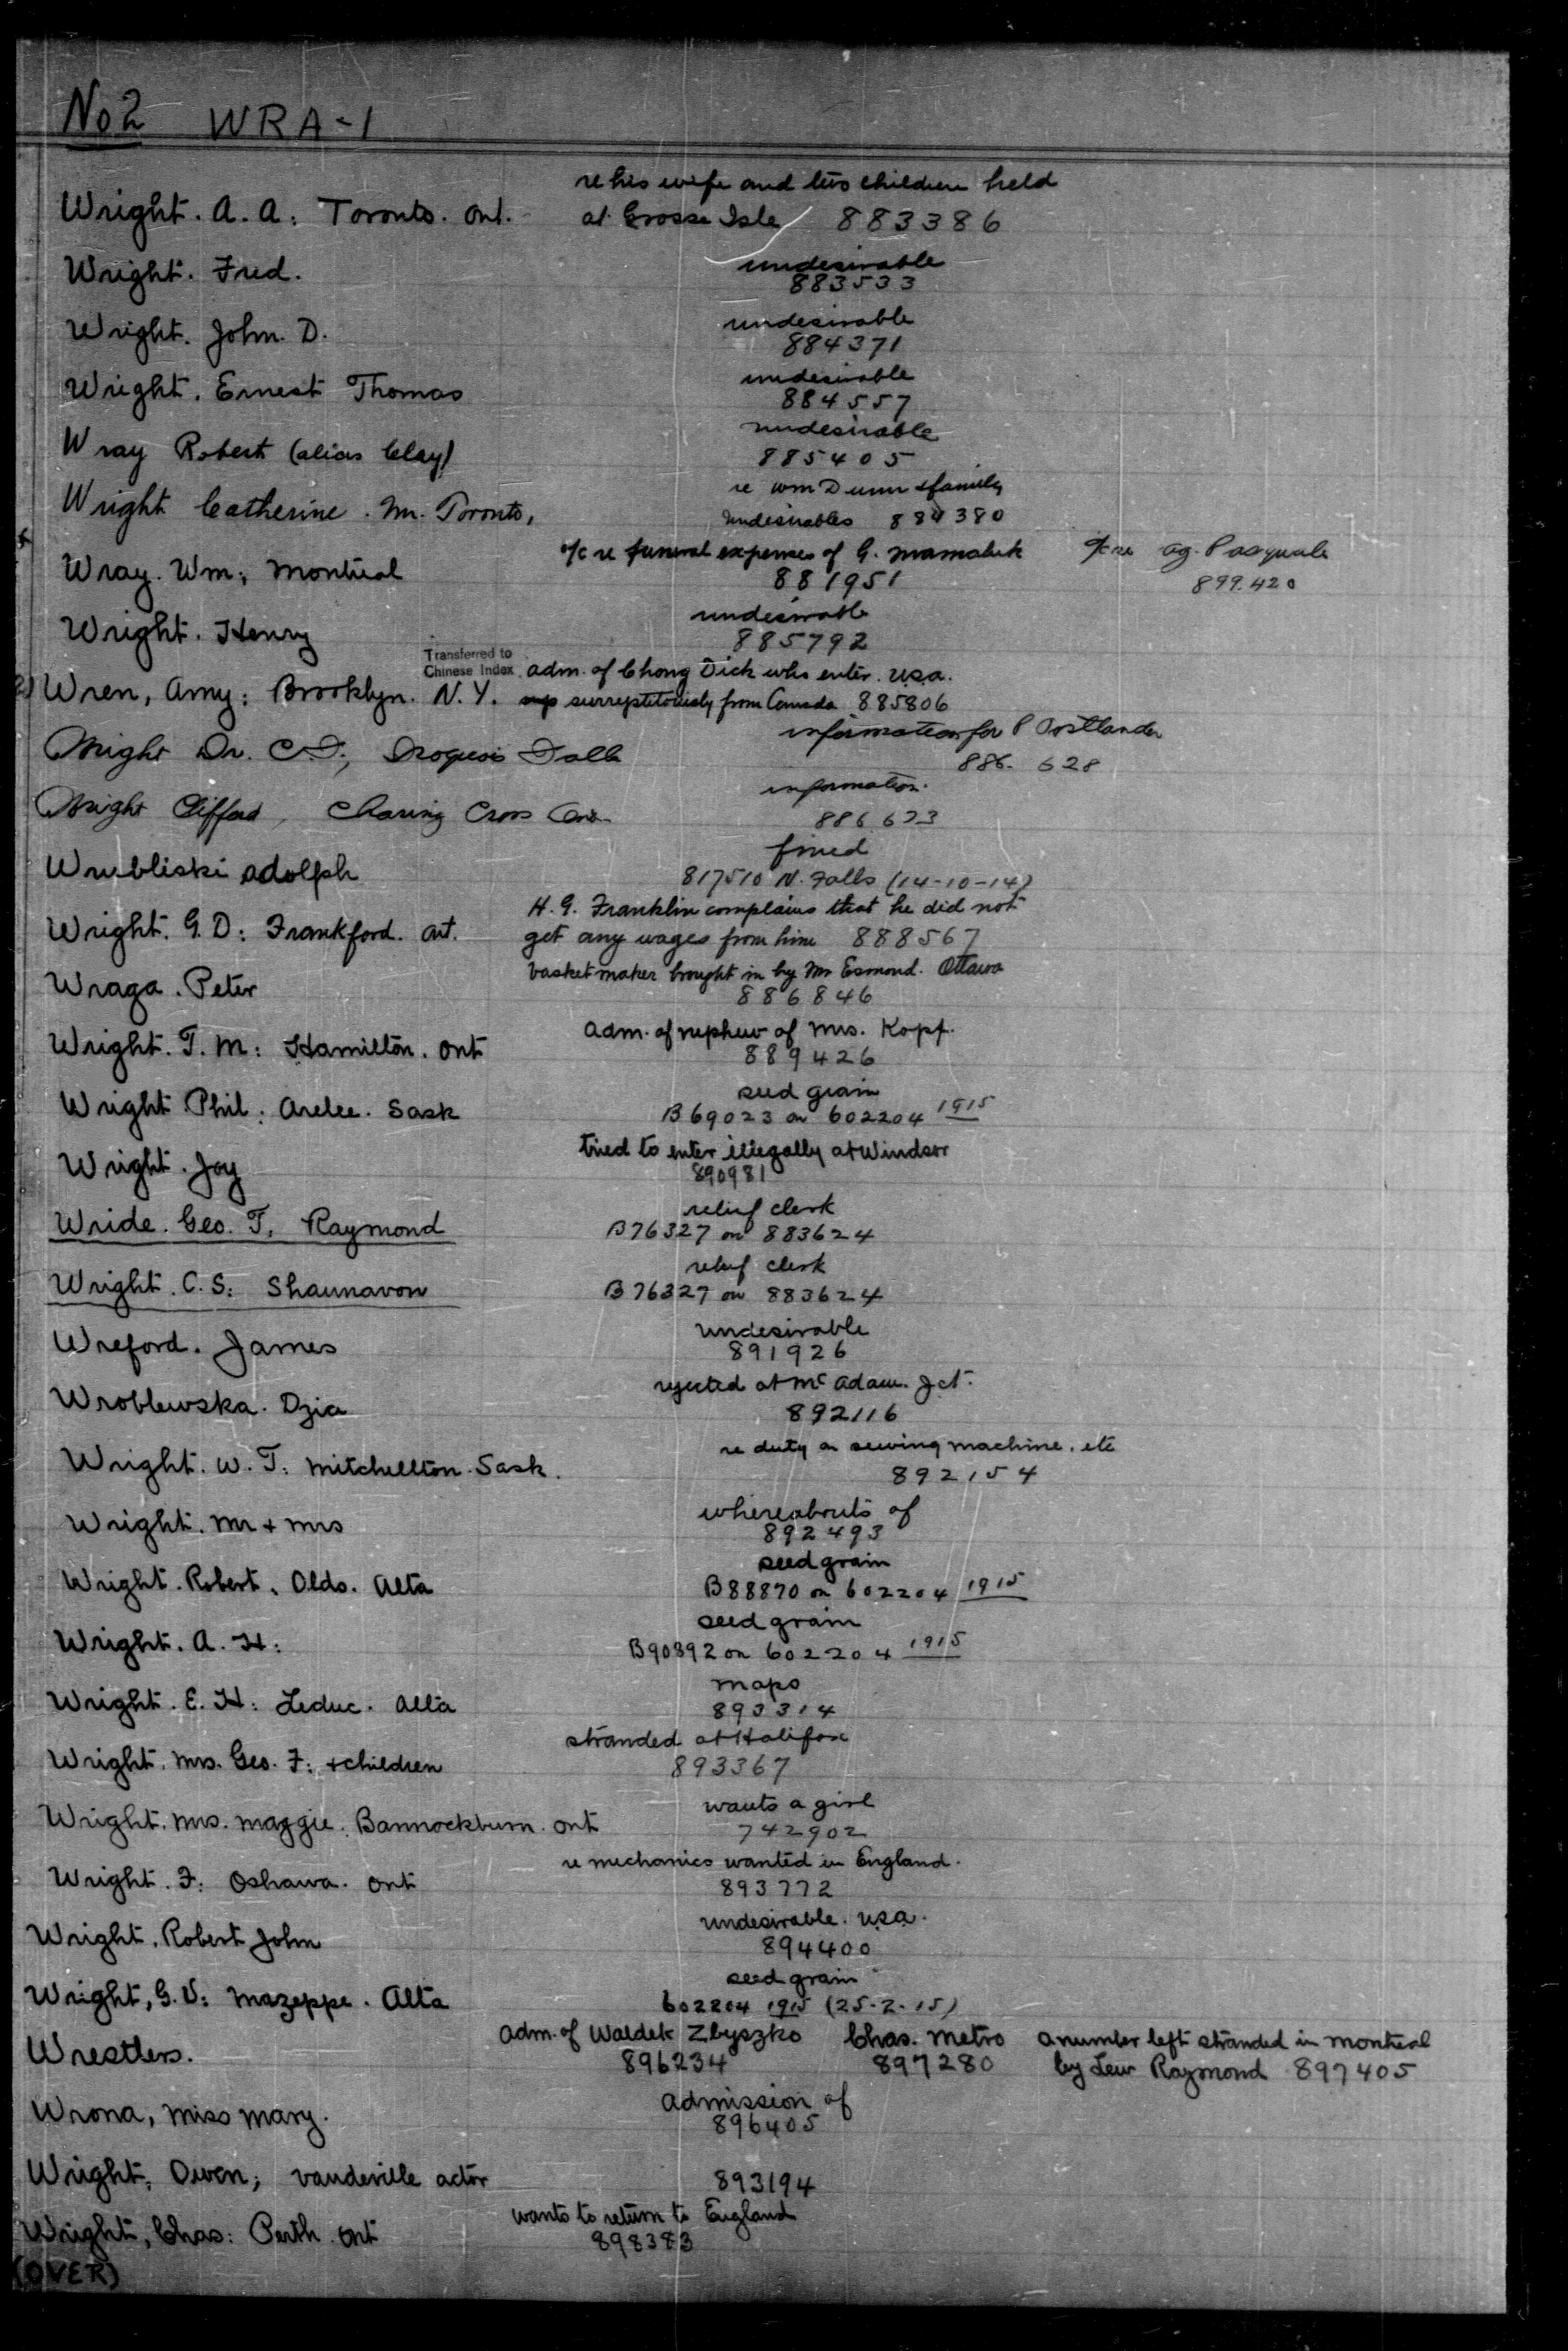 No 2 WRA-1
re his wife and two children held
Wright. A. A: Toronto. Ont. at Grosse Isle 883386
undesirable
Wright. Fred.
883533
undesirable
Wright. John. D.
884371
undesirable
Wright. Ernest Thomas
884557
undesirable
Wray Robert (alias Clay)
885405
re Wm Dunn & family
Wright Catherine. Mrs. Toronto, undesirables 884380
o/c re funeral expenses of G. Mamaluk o/c re Ag. Pasquale
Wray. Wm; Montreal 881951 899.420
undesirable
Wright. Henry 885792
Transferred to
Chinese Index adm. of Chong Dick who enter. U.S.A.
Wren, Amy: Brooklyn. N.Y. surreptitiously from Canada 885806
information for P Ostlander
Wright Dr. C.F., Iroquois Falls
886. 628
information.
Wright Clifford, Charing Cross Ont
886 673
fined
Wrubliski Adolph
817510 N. Falls (14-10-14)
H. G. Franklin complains that he did not
Wright. G. D: Frankford. Ont. get any wages from him 888567
basket maker brought in by Mr Esmond. Ottawa
Wraga. Peter
886846
adm. of nephew of Mrs. Kopf.
Wright. T. M: Hamilton. Ont
889426
seed grain
Wright. Phil: Arelee. Sask
B69023 on 602204 1915
tried to enter illegally at Windsor
Wright. Joy
890981
relief clerk
Wride. Geo. T. Raymond
B76327 on 883624
relief clerk
Wright. C. S: Shaunavon
B76327 on 883624
undesirable
Wreford. James
891926
rejected at McAdam. Jct.
Wroblewska. Dzia
892116
re duty on sewing machine. etc
Wright. W. T: Mitchellton. Sask.
892154
whereabouts of
Wright. Mr & Mrs
892493
seed grain
Wright. Robert. Olds. Alta
B88870 on 602204 1915
seed grain
Wright. A. H:
B90892 on 602204 1915
maps
Wright. E. H: Leduc. Alta
893314
stranded at Halifax
Wright. Mrs. Geo. F: & children
893367
wants a girl
Wright. Mrs. Maggie. Bannockburn. Ont
742902
re mechanics wanted in England.
Wright. F: Oshawa. Ont
893772
undesirable. U.S.A.
Wright. Robert John
894400
seed grain
Wright, G. V: Mazeppe. Alta
602204 1915 (25-2-15)
adm. of Waldek Zbyszko Chas. Metro a number left stranded in Montreal
Wrestlers. 896234 897280 by Lew Raymond 897405
admission of
Wrona, Miss Mary.
896405
Wright, Owen; vaudeville actor 893194
wants to return to England
Wright, Chas: Perth. Ont
898383
(OVER)